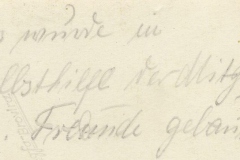 wurde in
lbsthilfe der Mitg
. Freunde gebau